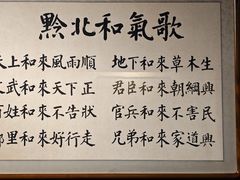 黔北和氣歌
上和來風雨順 地下和來草木生
武和來天下正 君臣和來朝綱興
姓和來不告狀 官兵和來不害民
里和來好行走 兄弟和來家道興